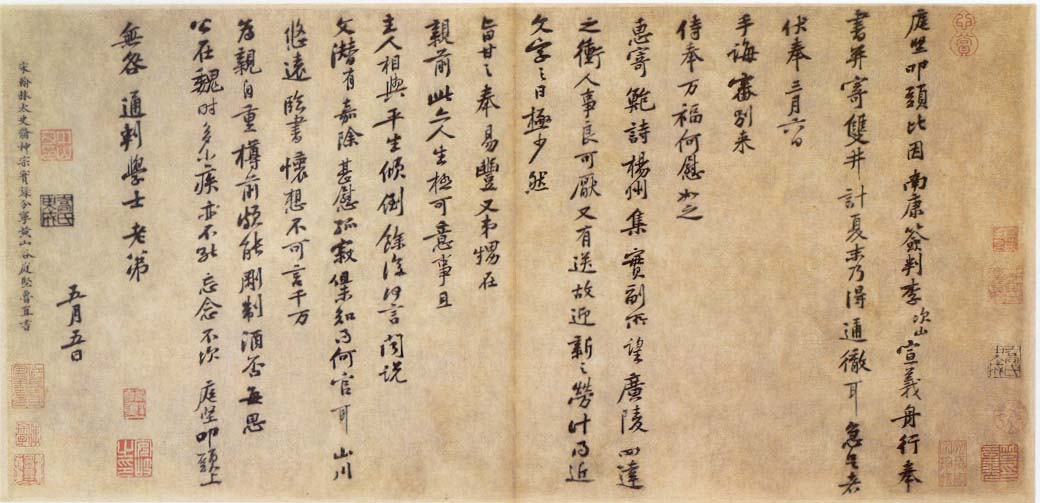 庭堅叩頭比因南康簽判李次山宣義舟行奉
書并寄雙井計夏末乃得通徹耳急足者
伏奉三月六日
手誨審別来
侍奉万福何慰如之
惠寄鮑詩楊州集實副所望廣陵四達
之衝人事良可厭又有送故迎新之勞計為近
文字之日極少然
旨甘之奉易豐又弟甥在
親前此亦人生極可意事且
主人相與平生傾倒餘復何言聞説
文潜有嘉除甚慰孤寂俱知為何官耳山川
悠遠臨書懷想不可言千万
為親自重樽前頗能剛制酒否每思
公在魏時多小疾亦不能忘念不次庭堅叩頭上
無咎通判學士老弟
五月五日
宋翰林太史脩神宗實錄分寧黃山谷庭堅魯直書